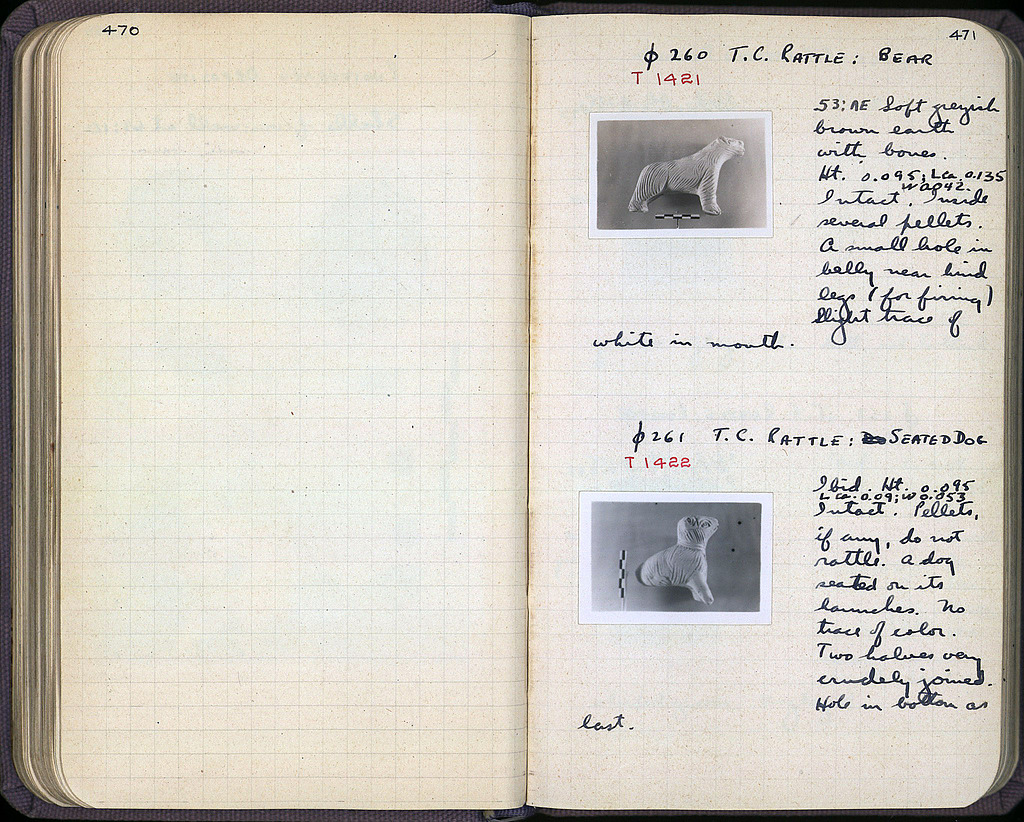 470
471
φ 260 T.C. RATTLE: BEAR
T 1421
53: AE Soft greyish
brown earth
with bones.
Ht. 0.095; L ca. 0.135
W 0.042.
Intact. Inside
several pellets.
A small hole in
belly near hind
legs (for firing)
Slight trace of
white in mouth.
φ 261 T.C. RATTLE: SEATED DOG
T 1422
Ibid. Ht. 0.095
L ca. 0.09; W 0.053
Intact. Pellets,
if any, do not
rattle. A dog
seated on its
haunches. No
trace of color.
Two halves very
crudely joined.
Hole in bottom as
last.